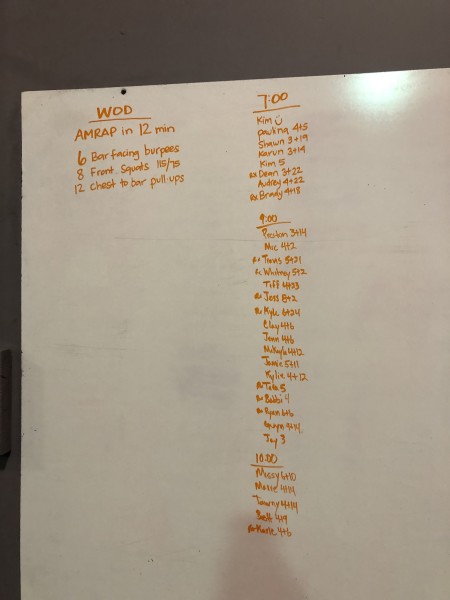 WOD
AMRAP in 12 min
6 Bar facing burpees
8 Front Squats 115/75
12 Chest to bar pull-ups
7:00
Kim
Paulina 4+5
Shawn 3+19
Karun 3+14
Kim 5
RX Dean 3+22
Audrey 4+22
RX Brady 4+18
9:00
Preston 3+14
Mic 4+2
Travis 5+21
Whitney 5+2
Tiff 4+23
Rx Jess 8+2
Rx Kyle 6+24
Clay 4+6
Jenn 4+6
4+12
Jamie 5+11
Kylie 4+12
Rx Tate 5
Rx Bobbi 4
Rx Ryan 6+6
3+14
Jay 3
10:00
Missy 6+10
4+14
Tawny 4+14
Brett 4+9
Rx 4+6